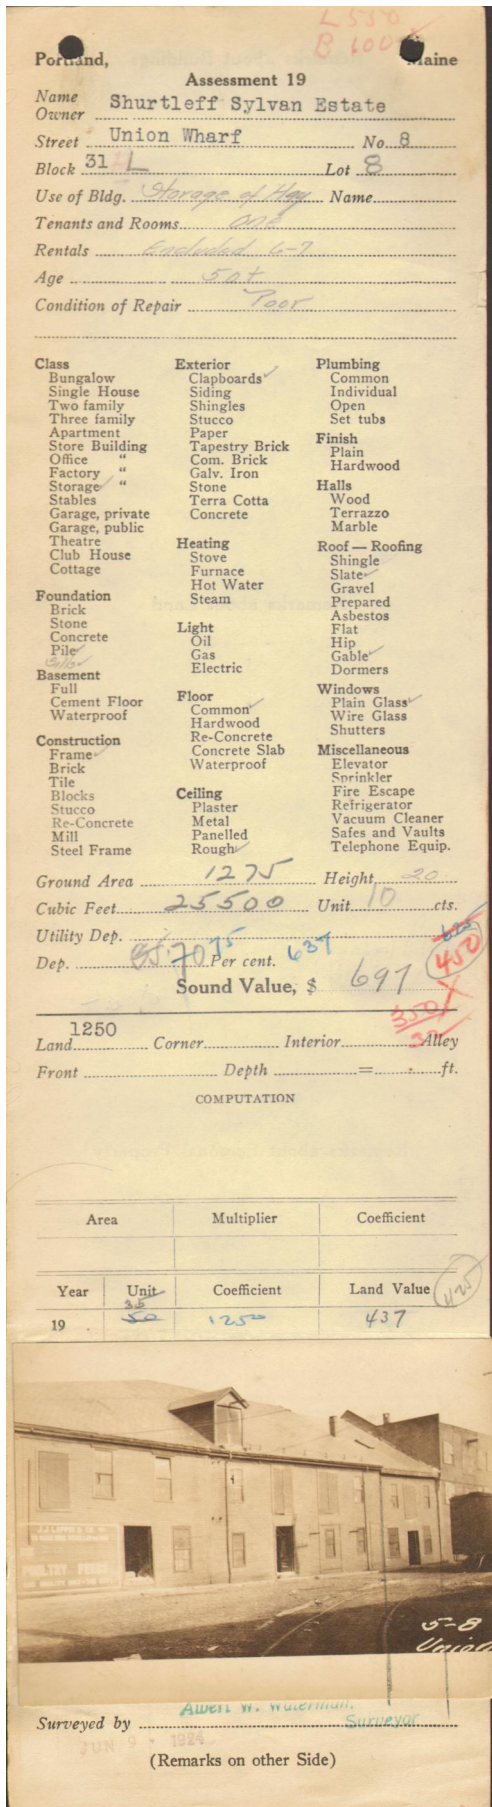 L 550
B 600
Portland, Maine
Assessment 19
Name
Owner Shurtleff Sylvan Estate
Street Union Wharf No. 8
Block 31 L Lot 8
Use of Bldg. Storage of Hay Name
Tenants and Rooms One
Rentals Included 6-7
Age 50+
Condition of Repair Poor
Class
Bungalow
Single House
Two family
Three family
Apartment
Store Building
Office "
Factory "
Storage "
Stables
Garage, private
Garage, public
Theatre
Club House
Cottage
Foundation
Brick
Stone
Concrete
Pile
Basement
Full
Cement Floor
Waterproof
Construction
Frame
Brick
Tile
Blocks
Stucco
Re-Concrete
Mill
Steel Frame
Exterior
Clapboards
Siding
Shingles
Stucco
Paper
Tapestry Brick
Com. Brick
Galv. Iron
Stone
Terra Cotta
Concrete
Heating
Stove
Furnace
Hot Water
Steam
Light
Oil
Gas
Electric
Floor
Common
Hardwood
Re-Concrete
Concrete Slab
Waterproof
Ceiling
Plaster
Metal
Panelled
Rough
Plumbing
Common
Individual
Open
Set tubs
Finish
Plain
Hardwood
Halls
Wood
Terrazzo
Marble
Roof — Roofing
Shingle
Slate
Gravel
Prepared
Asbestos
Flat
Hip
Gable
Dormers
Windows
Plain Glass
Wire Glass
Shutters
Miscellaneous
Elevator
Sprinkler
Fire Escape
Refrigerator
Vacuum Cleaner
Safes and Vaults
Telephone Equip.
Ground Area 1275 Height 20
Cubic Feet 25500 Unit 10 cts.
Utility Dep.
Dep. 70 75 Per cent. 637 450
Sound Value, $ 697
350
1250
Land Corner Interior Alley
Front Depth = ft.
COMPUTATION
Area Multiplier Coefficient
Year Unit Coefficient Land Value 425
35
19 50 1250 437
5-8
Union
Albert W. Waterman,
Surveyed by Surveyor
JUN 9 - 1924
(Remarks on other Side)